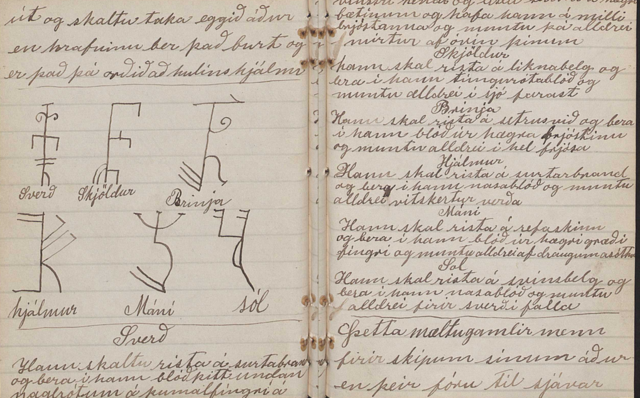 út og skaltu taka eggið áður
en hrafninn ber það burt og
er það þá orðið að hulinshjálmi
Sverð Skjöldur Brinja
hjálmur Máni Sól
Sverð
Hann skaltu rista á surtarbrand
og bera í hann blóð þitt undan
naglrótum á þumalfingri á
batinum og hafa hann á milli
brjóstanna og muntu þá alldrei
mirtur af óvin þínum
Skjöldur
hann skal rista á liknabelg og
bera í hann tungurótablóð og
muntu alldrei í sjó farast
Brinja
Hann skal rista á selrusnið og bera
í hann blóð úr hægra brjóstinu
og muntu alldrei í hel frjósa
Hjálmur
Hann skal rista á surtarbrand
og bera í hann nasablóð og muntu
alldrei vitskertur verða
Máni
Hann skal rista á refaskinn
og bera í hann blóð úr hægri græði
fingri og muntu alldrei af draugum
Sól
Hann skal rista á svinsbelg og
bera í hann nasablóð og muntu
alldrei firir sverði falla
Þetta mæltu gamlir menn
firir skipum sínum áður
en þeir fóru til sjávar